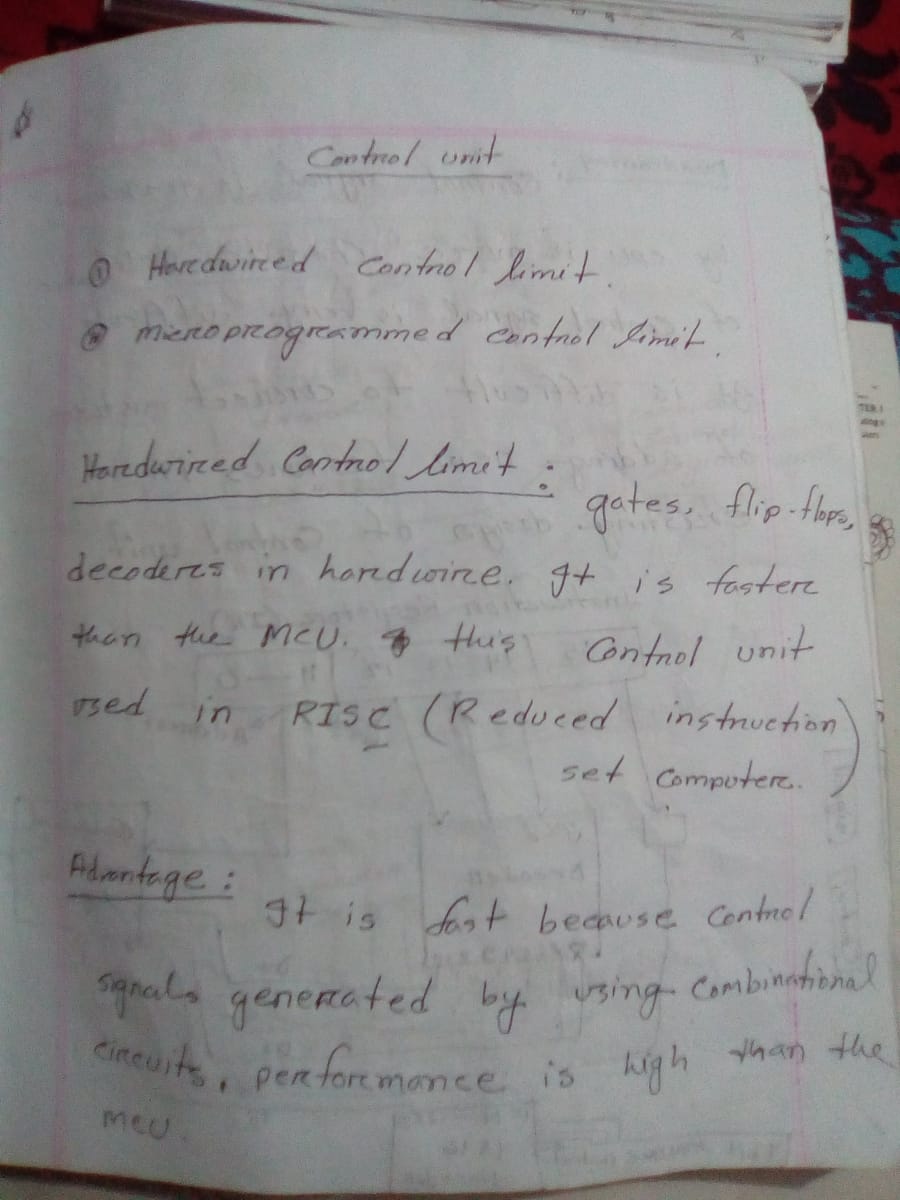 Control unit
① Hardwired Control limit.
② microprogrammed control limit.
Hardwired Control limit :
gates, flip-flops,
decoders in hardwire. It is faster
than the MCU. this Control unit
used in RISC (Reduced instruction
set Computer.)
Advantage :
It is fast because Control
signals generated by using Combinational
circuits, performance is high than the
MCU.